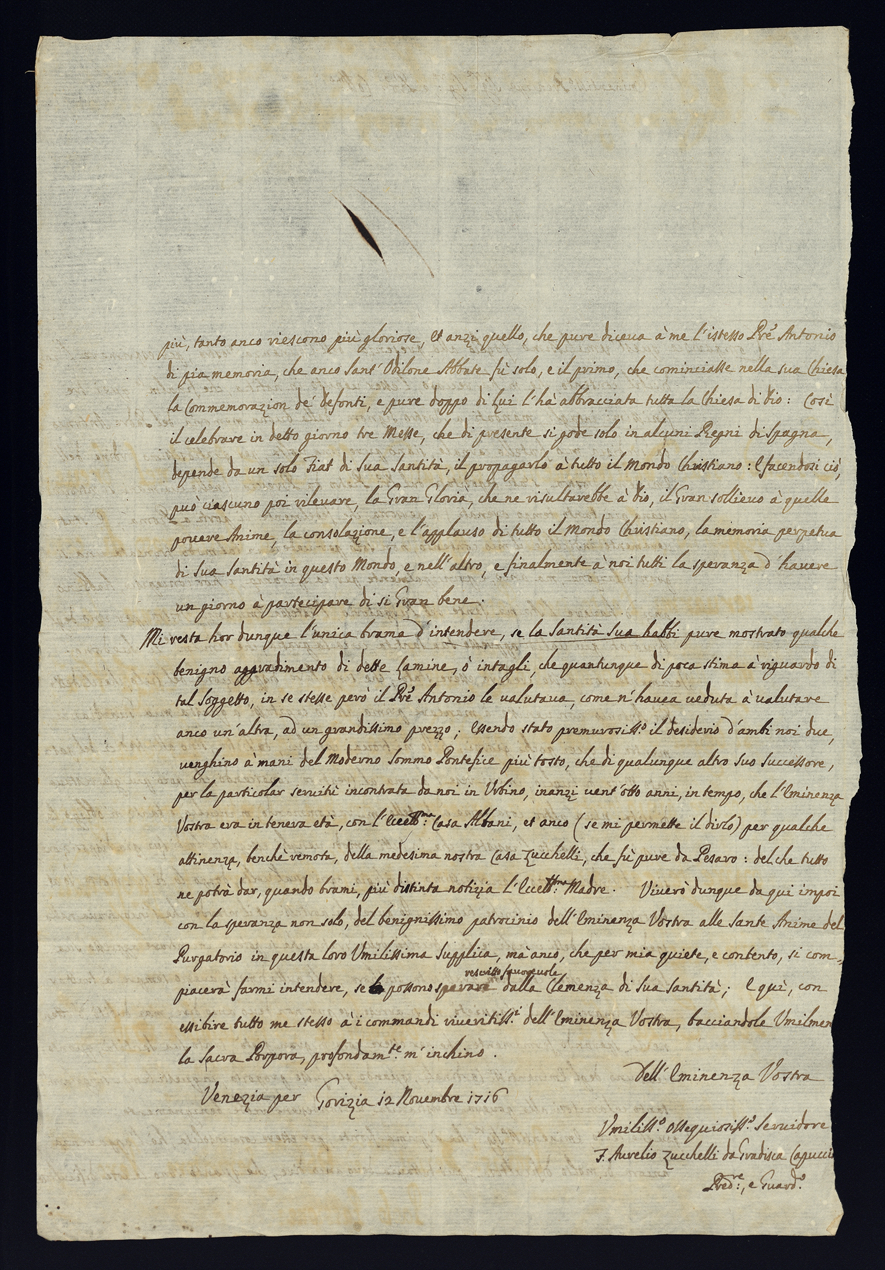 più, tanto anco riescono più gloriose, et anzi quello, che pure diceua à me l'istesso Pre. Antonio
di pia memoria, che anco Sant' Odilone Abbate fù solo, e il primo, che cominciasse nella sua Chiesa
la Commemorazion de' defonti, e pure doppo di Lui l'hà abbracciata tutta la Chiesa di Dio: Così
il celebrare in detto giorno tre Messe, che di presente si gode solo in alcuni Regni di Spagna,
depende da un solo Fiat di Sua Santità, il propagarlo à tutto il Mondo Christiano: E facendosi ciò,
può ciascuno poi rileuare, la Gran Gloria, che ne risultarebbe à Dio, il Gran sollieuo à quelle
pouere Anime, la consolazione, e l'applauso di tutto il Mondo Christiano, la memoria perpetua
di Sua Santità in questo Mondo, e nell'altro, e finalmente à noi tutti la speranza d'hauere
un giorno à partecipare di si Gran bene.
Mi resta hor dunque l'unica brama d'intendere, se la Santità Sua habbi pure mostrato qualche
benigno aggradimento di dette Lamine, ò intagli, che quantunque di poca stima à riguardo di
tal Soggetto, in se stesse però il Pre. Antonio le ualutaua, come n'hauea ueduta à ualutare
anco un'altra, ad un grandissimo prezzo; Essendo stato premurosiss.o il desiderio d'ambi noi due,
uenghino à mani del Moderno Sommo Pontefice più tosto, che di qualunque altro Suo Successore,
per la particolar seruitù incontrata da noi in Urbino, inanzi uent'otto anni, in tempo, che l'Eminenza
Vostra era in tenera età, con l'Eccell.ma Casa Albani, et anco (se mi permette il dirlo) per qualche
attinenza, benchè remota, della medesima nostra Casa Zucchelli, che fù pure da Pesaro: del che tutto
ne potrà dar, quando brami, più distinta notizia l'Eccell.ma Madre. Viuerò dunque da qui impoi
con la speranza non solo, del benignissimo patrocinio dell'Eminenza Vostra alle Sante Anime del
Purgatorio in questa loro Umilissima Supplica, mà anco, che per mia quiete, e contento, si com-
piacerà farmi intendere, se possono sperare rescritto fauoreuole dalla Clemenza di Sua Santità; E quì, con
essibire tutto me stesso à i commandi riueritiss.i dell'Eminenza Vostra, bacciandole Umilmen
la Sacra Porpora, profondam.te m'inchino.
Dell'Eminenza Vostra
Venezia per Gorizia 12 Nouembre 1716
Umiliss.o Ossequiosiss.o Seruidore
F. Aurelio Zucchelli da Gradisca Capuccin
Pred.re, e Guard.o